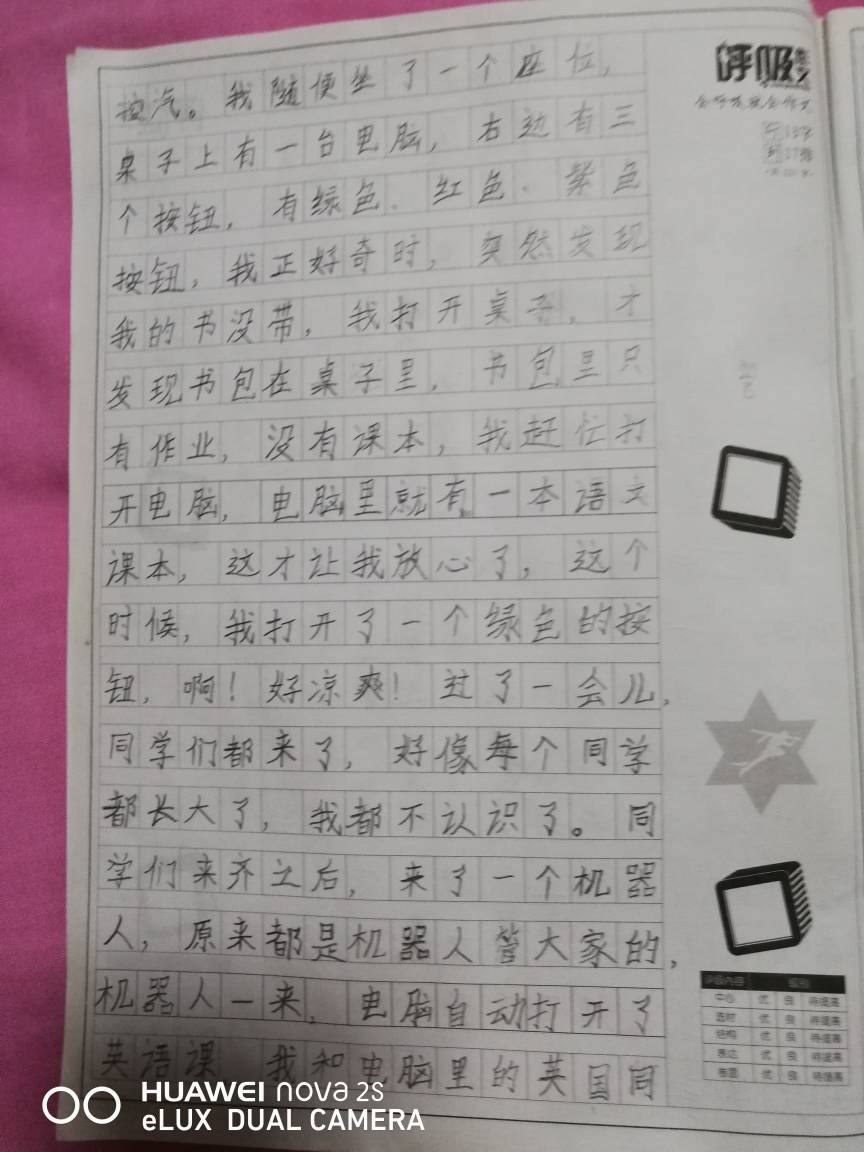 按汽。我随便坐了一个座位，
桌子上有一台电脑，右边有三
个按钮，有绿色、红色、紫色
按钮，我正好奇时，突然发现
我的书没带，我打开桌子，才
发现书包在桌子里，书包里只
有作业，没有课本，我赶忙打
开电脑，电脑里就有一本语文
课本，这才让我放心了，这个
时候，我打开了一个绿色的按
钮，啊！好凉爽！过了一会儿，
同学们都来了，好像每个同学
都长大了，我都不认识了。同
学们来齐之后，来了一个机器
人，原来都是机器人管大家的，
机器人一来，电脑自动打开了
英语课 我和电脑里的英国同
呼吸作文
会呼吸就会作文
评级内容 级别
中心 优 良 待提高
选材 优 良 待提高
结构 优 良 待提高
表达 优 良 待提高
书面 优 良 待提高
HUAWEI nova 2S
eLUX DUAL CAMERA